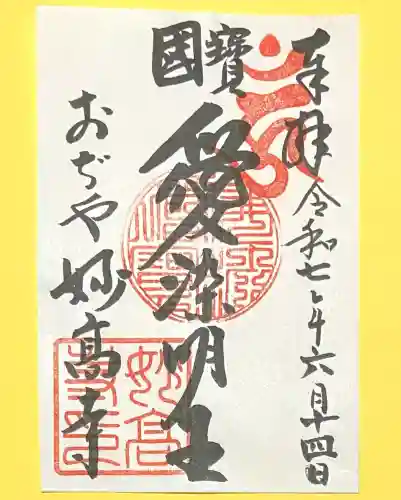 奉拝
令和七年六月十四日
國寶
愛染明王
おぢや
妙高寺
妙高寺印